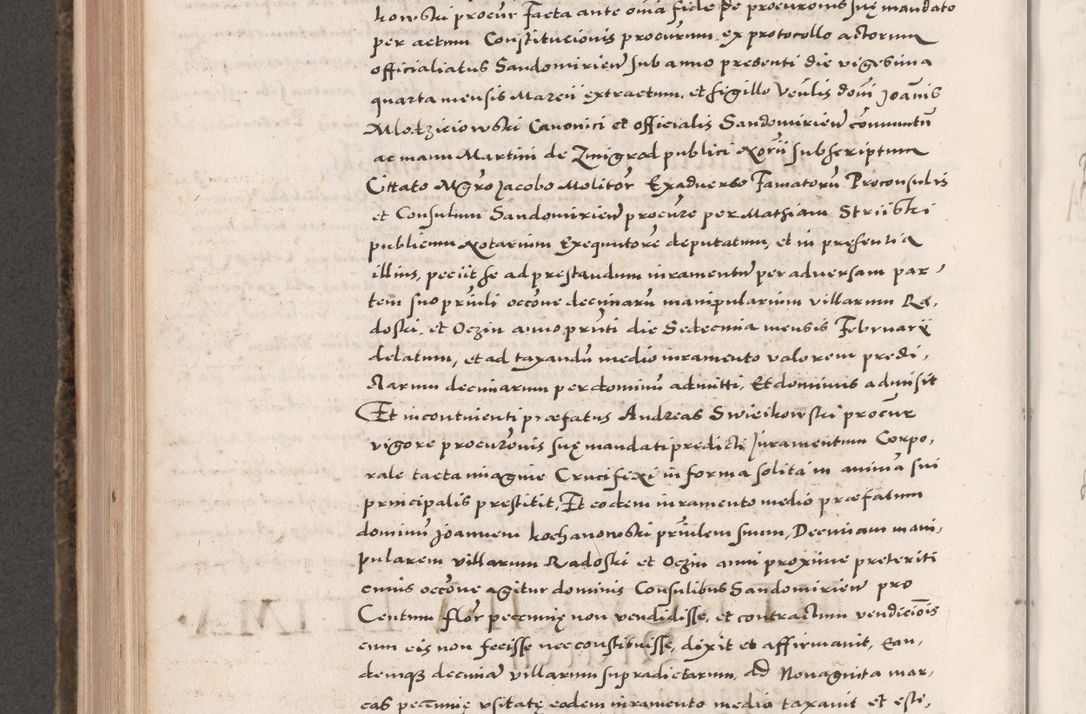 kowski procur facta ante omnia fide de procuronis suę mandato
per actum Constitucionis procurum. ex protocollo actorum
officialiatus Sandomirien sub anno presenti die vigesima
quarta mensis Marcii extractum. et sigillo Venlis domi Joannis
Mlodziciowski Canonici et officialis Sandomirien comunitu
ac manu Martini de Zmigrod publici Notarii subscriptum
Cittato Mgro Jacobo Molitor Exadverso Famatoru Proconsulis
et Consulum Sandomirien procure per Mathiam Striiski
publicum Notarium Exequutore deputatum, et in presentia
illius, peciit se ad prestandum iuramentu per adversam par,
tem suo priuli occone decimaru manipularium villarum Ra,
doski. et Oczin anno prnti die Sedecima mensis Februarii
delatum, et ad taxandu medio iuramento valorem predi,
ctarum decimarum per dominu admitti. Et dominus admisit
Et incontinenti præfatus Andreas Swieikowski procur
vigore procuronis suę mandati predicti Juramentum Corpo,
rale tacta imagine Crucifixi in forma solita in anima sui
principalis prestitit, Et eodem iuramento medio præfatum
dominu Joannem Kochanowski priuilem suum, Decimam mani,
pularem villarum Radoski et Oczin anni proxime preteriti
cuius occone agitur dominis Consulibus Sandomirien pro
Centum flor pecunię non vendidisse, et contractum vendiciois
cum eis non fecisse nec constituisse, dixit et affirmauit, Ean,
demque decima villarum supradictarum, ad Nonaginta mar,
cas pecunię vsitatę eodem iuramento medio taxauit et esti,